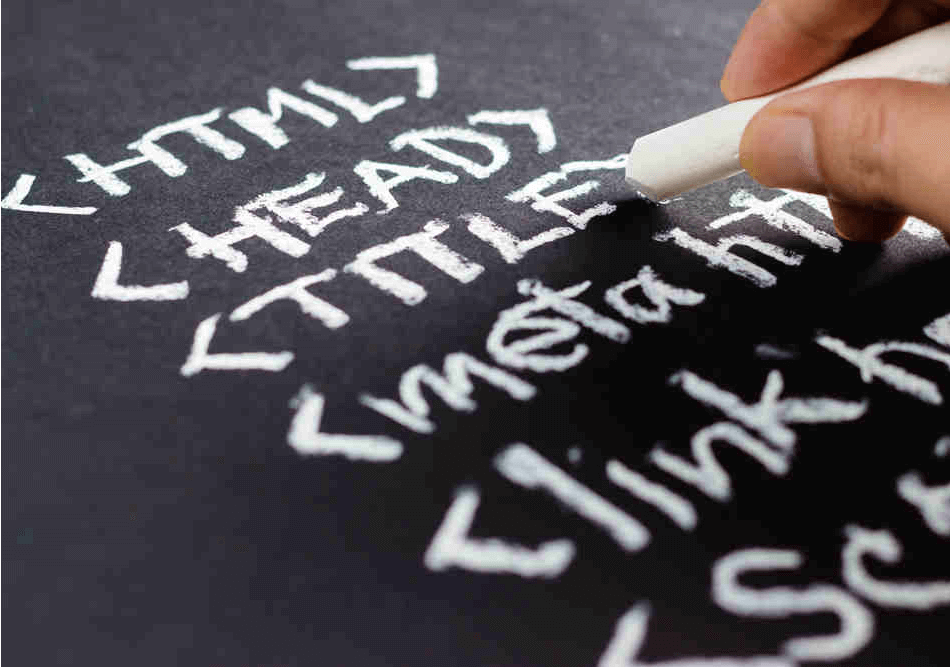 <HTML>
<HEAD>
<TITLE
<meta ht
<link h
<Sc